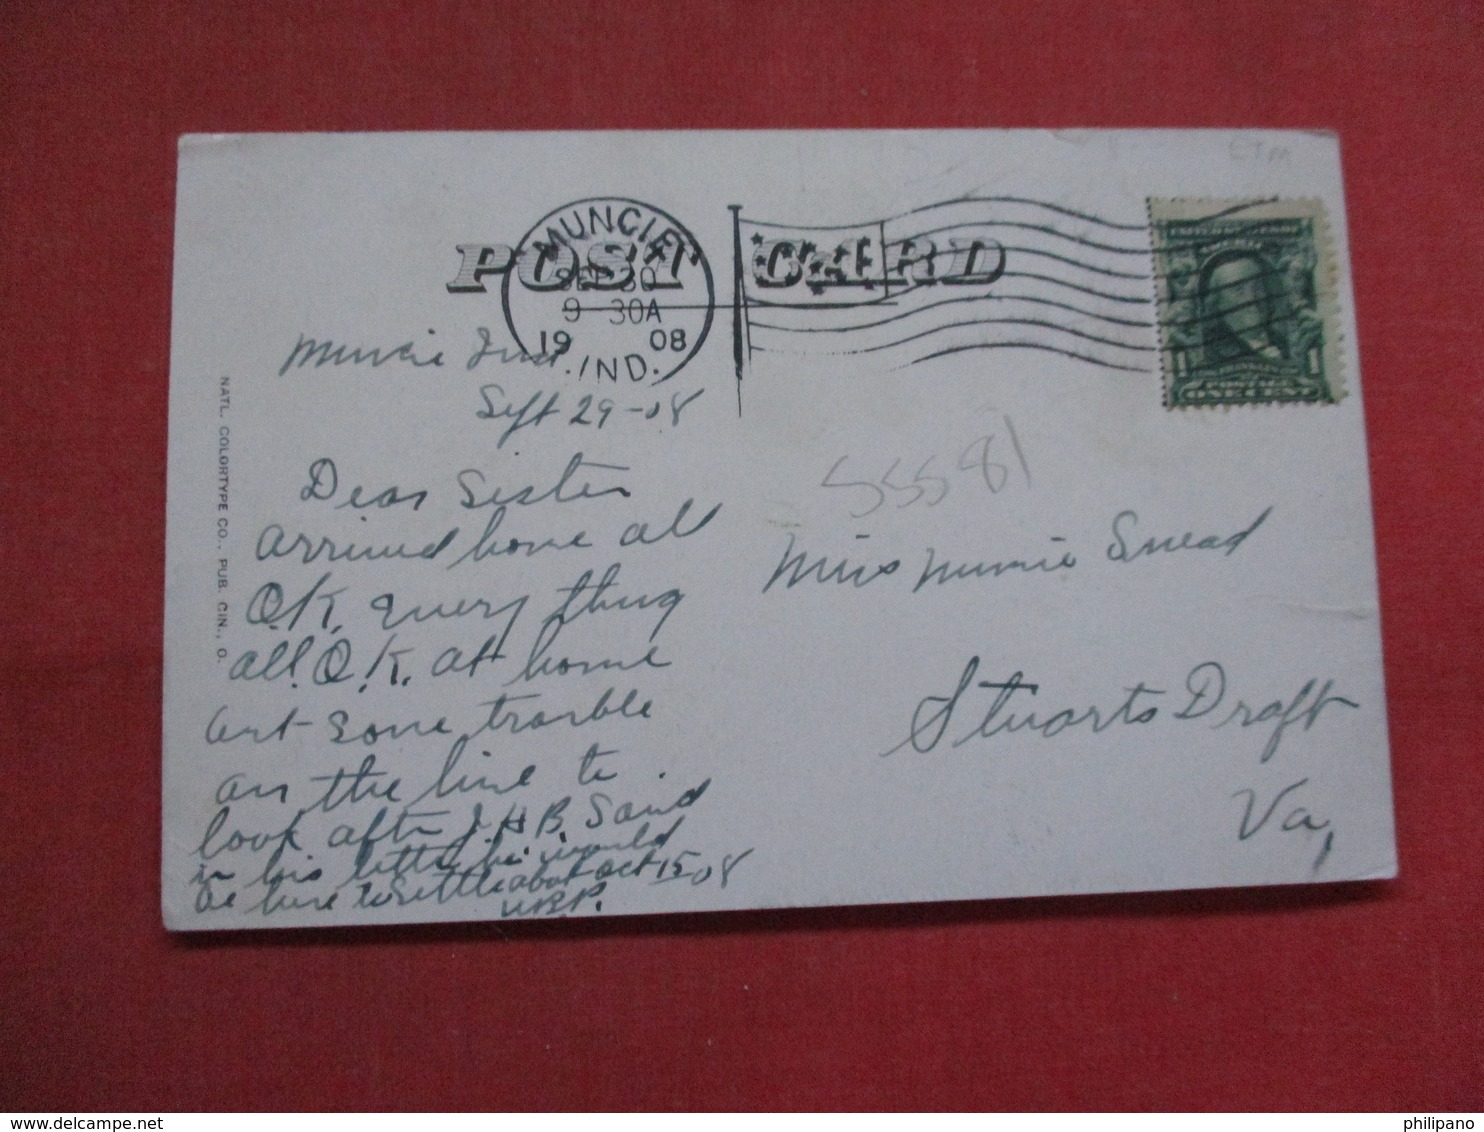 ETM
POST CARD
MUNCIE
SEP 30
9 30A
1908
IND.
1 1
ONE CENT
NATL. COLORTYPE CO., PUB. CIN., O.
Muncie Ind
Sept 29-08
Dear Sister
arrived home all
O.K. every thing
all O.K. at home
but some trouble
on the line to
look after J.H.B. Said
in his letter he would
be here to Settle about Oct 15-08
55581
Miss Minnie Snead
Stuarts Draft
Va,
philipano
delcampe.net